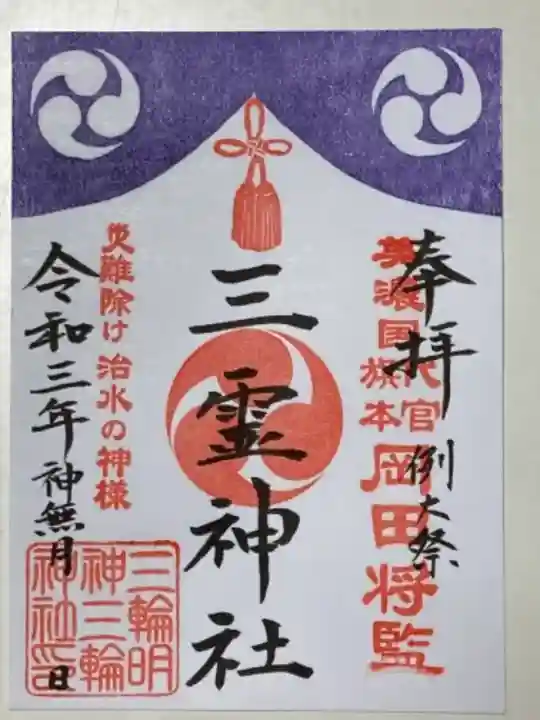 奉拝
例大祭
美濃国代官
旗本
岡田将監
三霊神社
災難除け 治水の神様
令和三年 神無月 日
三輪明
神三輪
神社印